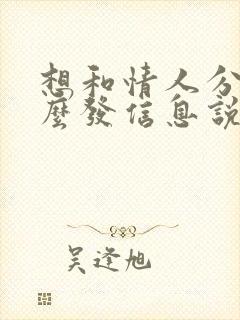 想和情人分
麼發信息說
吴逢旭